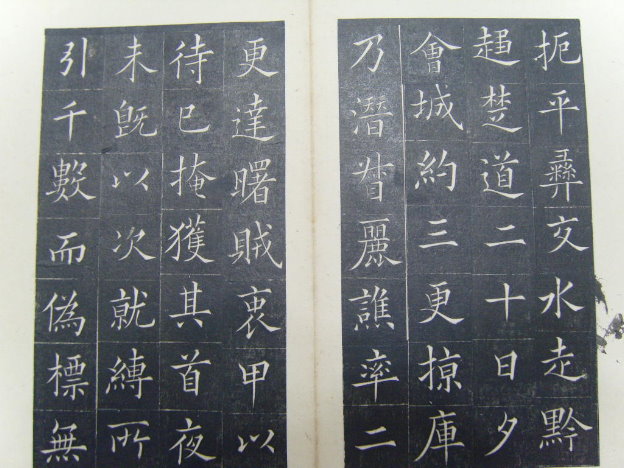 扼平彝交水走黔
趨楚道二十日夕
會城約三更掠庫
乃潛督麗譙率二
更達曙賊衷甲以
待已掩獲其首夜
未既以次就縛所
引千數而偽標無